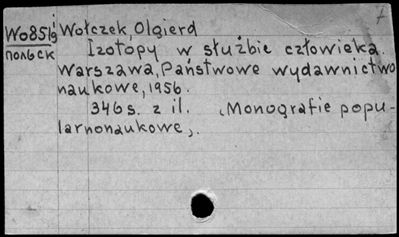 Wo851g Wołczek, Olgierd
польск Izotopy w służbie człowieka.
Warszawa, Państwowe wydawnictwo
naukowe, 1956.
346 s. z il. (Monografie popu-
larnonaukowe).